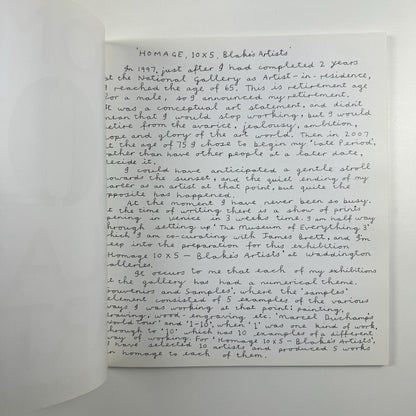 'HOMAGE, 10X5, Blake's Artists'
In 1997, just after I had completed 2 years
at the National Gallery as Artist-in-residence,
I reached the age of 65. This is retirement age
for a male, so I announced my retirement.
It was a conceptual art statement, and didn't
mean that I would stop working, but I would
retire from the avarice, jealousy, ambition,
hope and glory of the art world. Then in 2007
at the age of 75 I chose to begin my 'Late Period',
rather than have other people at a later date,
decide it.
I could have anticipated a gentle stroll
towards the sunset, and the quiet ending of my
career as an artist at that point, but quite the
opposite has happened.
At the moment I have never been so busy.
At the time of writing there is a show of prints
opening in Venice in 3 weeks time. I am half way
through setting up 'The Museum of Everything 3'
which I am co-curating with James Brett, and I'm
deep into the preparation for this exhibition
'Homage 10X5 – Blake's Artists' at Waddington
Galleries.
It occurs to me that each of my exhibitions
at the gallery has had a numerical theme.
'Souvenirs and Samples', where the 'samples'
element consisted of 5 examples of the various
ways I was working at that point: painting,
drawing, wood-engraving etc. 'Marcel Duchamp's
World Tour' and '1-10', when '1' was one kind of work,
through to '10' which has 10 examples of a different
way of working. For 'Homage 10X5 – Blake's Artists',
I have selected 10 artists and produced 5 works
in homage to each of them.